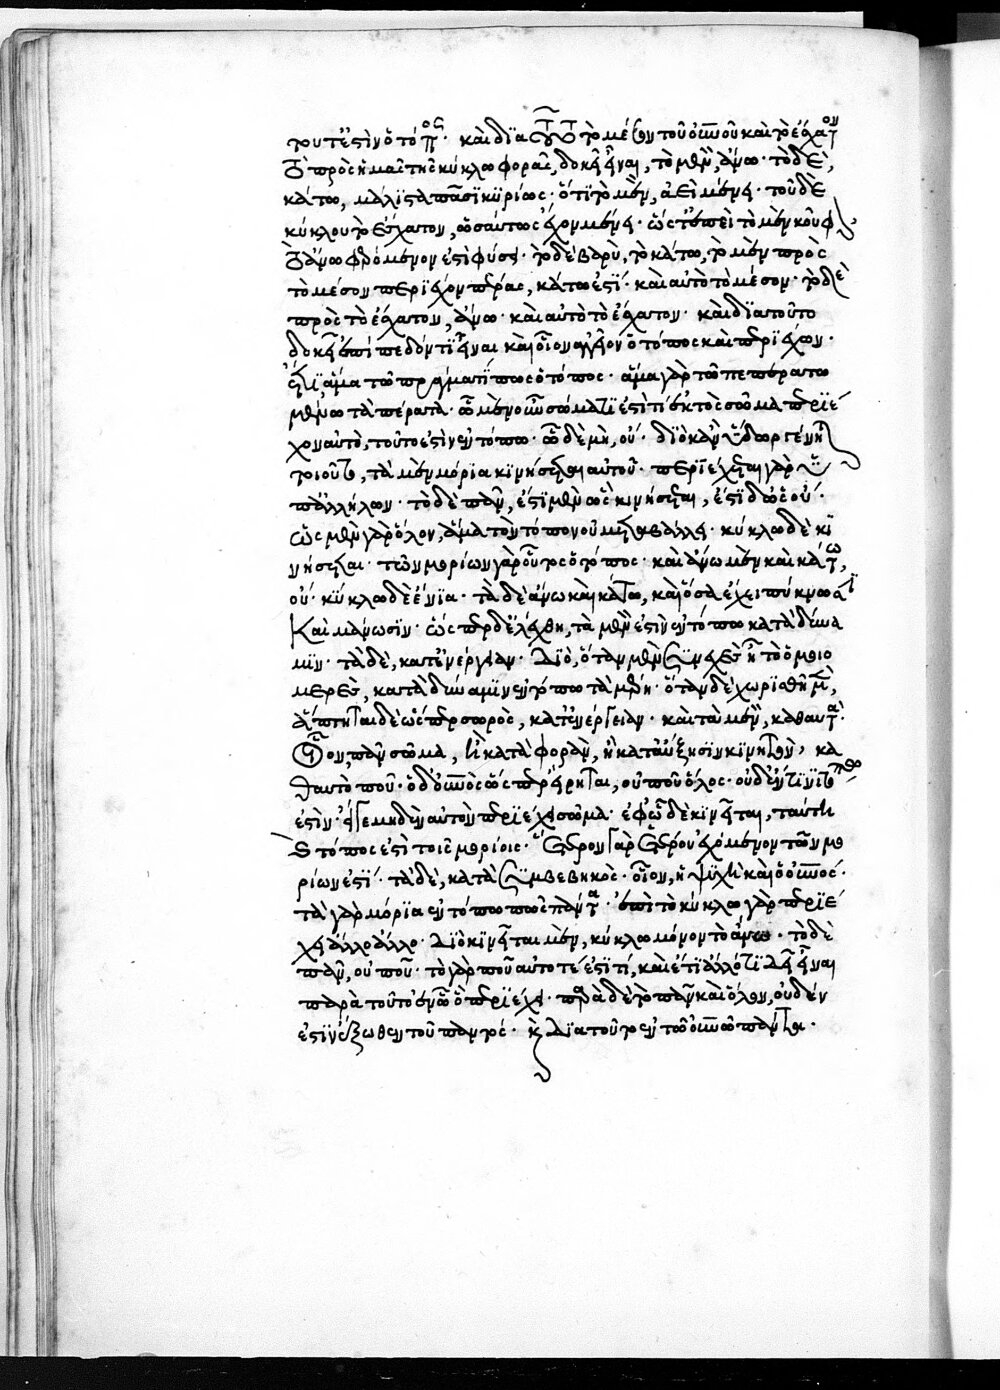 τουτέστιν ὁ τόπος· καὶ διὰ τοῦτο τὸ μέσον τοῦ οὐρανοῦ καὶ τὸ ἔσχατον
τὸ πρὸς ἡμᾶς τῆς κύκλω φορᾶς, δοκεῖ εἶναι, τὸ μὲν, ἄνω· τὸ δὲ,
κάτω, μάλιστα πᾶσι κυρίως· ὅτι τὸ μὲν, ἀεὶ μένει· τοῦ δὲ
κύκλου τὸ ἔσχατον, ὡσαύτως ἔχον μένει· ὥστ' ἐπεὶ τὸ μὲν κοῦφον
τὸ ἄνω φερόμενον ἐστὶ φύσει· τὸ δὲ βαρὺ, τὸ κάτω, τὸ μὲν πρὸς
τὸ μέσον περιέχον πέρας, κάτω ἐστί· καὶ αὐτὸ τὸ μέσον· τὸ δὲ
πρὸς τὸ ἔσχατον, ἄνω· καὶ αὐτὸ τὸ ἔσχατον· καὶ διὰ τοῦτο
δοκεῖ ἐπίπεδόν τι εἶναι καὶ οἷον ἀγγεῖον ὁ τόπος καὶ περιέχων·
ἔτι ἅμα τῶ πράγματί πως ὁ τόπος· ἅμα γὰρ τῶ πεπερασ
μένω τὰ πέρατα· ὧ μὲν οὖν σώματί ἐστί τι ἐκτὸς σῶμα περιέ
χον αὐτὸ, τοῦτό ἐστιν ἐν τόπω· ὧ δὲ μὴ, οὔ· διὸ κἂν ὕδωρ γένηται
τοιοῦτον, τὰ μὲν μόρια κινήσεται αὐτοῦ· περιέχεται γὰρ ὑπ'
ἀλλήλων· τὸ δὲ πᾶν, ἔστι μὲν ὡς κινήσεται, ἔστι δ' ὡς οὔ·
ὡς μὲν γὰρ ὅλον, ἅμα τὸν τόπον οὐ μεταβάλλει· κύκλω δὲ κι
νήσεται· τῶν μορίων γὰρ οὗτος ὁ τόπος· καὶ ἄνω μὲν καὶ κάτω,
οὔ· κύκλω δὲ ἔνια· τὰ δὲ ἄνω καὶ κάτω, καὶ ὅσα ἔχει πύκνωσι
καὶ μάνωσιν· ὡς περ δ' ἐλέχθη, τὰ μὲν ἐστὶν ἐν τόπω κατὰ δύνα
μιν· τὰ δὲ, κατ' ἐνέργειαν· διὸ, ὅταν μὲν συνεχὲς ἦ τὸ ὁμοιο
μερὲς, κατὰ δύναμιν ἐν τόπω τὰ μέρη· ὅταν δὲ χωρισθῆ μὲν,
ἅπτηται δὲ ὥσπερ σωρὸς, κατ' ἐνέργειαν· καὶ τὰ μὲν, καθαυτά·
οἷον, πᾶν σῶμα, ἢ κατὰ φορὰν, ἢ κατ' αὔξησιν κινητὸν, κα
θαυτό που· ὁ δ' οὐρανὸς ὥσπερ εἴρηται, οὐ που ὅλος· οὐδ' ἔν τινι τόπω
ἐστὶν· εἴγε μηδὲν αὐτὸν περιέχει σῶμα· ἐφ' ὧ δὲ κινεῖται, ταύτη
ὁ τόπος ἐστὶ τοῖς μορίοις· ἕτερον γὰρ ἑτέρου ἐχόμενον τῶν μο
ρίων ἐστί· τὰ δὲ, κατὰ συμβεβηκὸς· οἷον, ἡ ψυχὴ καὶ ὁ οὐρανός·
τὰ γὰρ μόρια ἐν τόπω πως πάντα· ἐπὶ τὸ κύκλω γὰρ περιέ
χει ἄλλο ἄλλο· διὸ κινεῖται μὲν, κύκλω μόνον τὸ ἄνω· τὸ δὲ
πᾶν, οὔ που· τὸ γάρ που αὐτό τέ ἐστί τι, καὶ ἔτι ἄλλό τι δεῖ εἶναι
παρὰ τοῦτο ἐν ὧ ὃ περιέχει· παρὰ δὲ τὸ πᾶν καὶ ὅλον, οὐδέν
ἐστιν ἔξωθεν τοῦ παντὸς· καὶ διὰ τοῦτο ἐν τῶ οὐρανῶ πάντα·